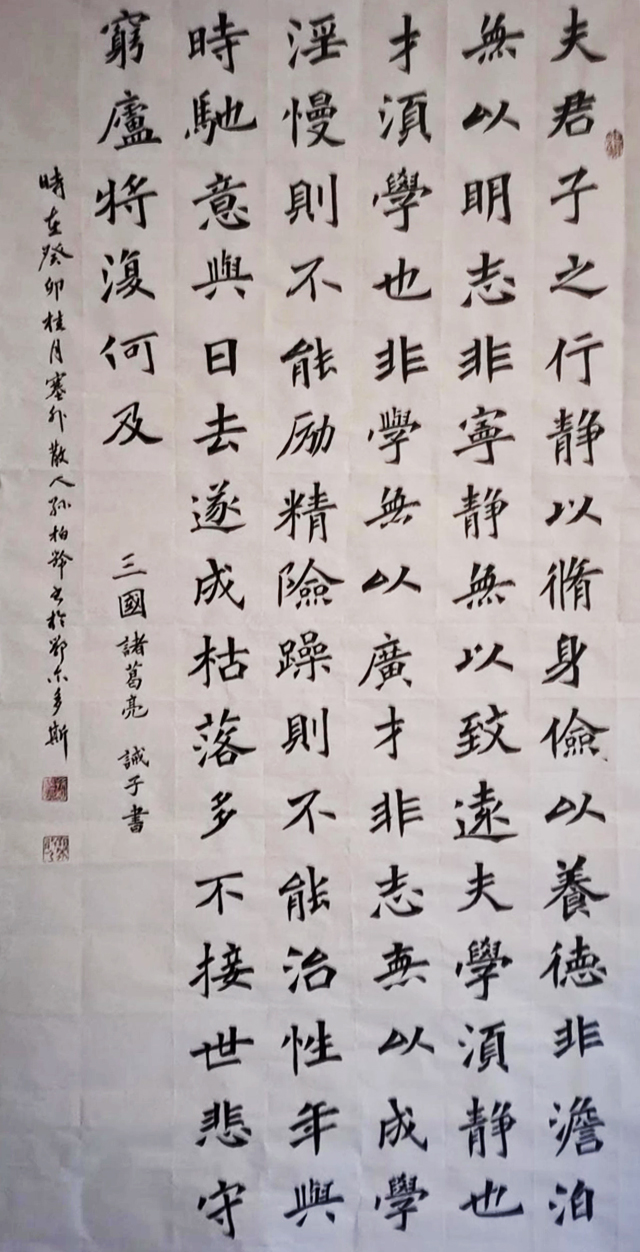 夫君子之行静以脩身儉以養德非澹泊
無以明志非寧静無以致遠夫學須静也
才須學也非學無以廣才非志無以成學
淫慢則不能励精險躁則不能治性年與
時馳意與日去遂成枯落多不接世悲守
窮廬將復何及
三國諸葛亮 誡子書
時在癸卯桂月塞外散人孙柏龄书於鄂尔多斯